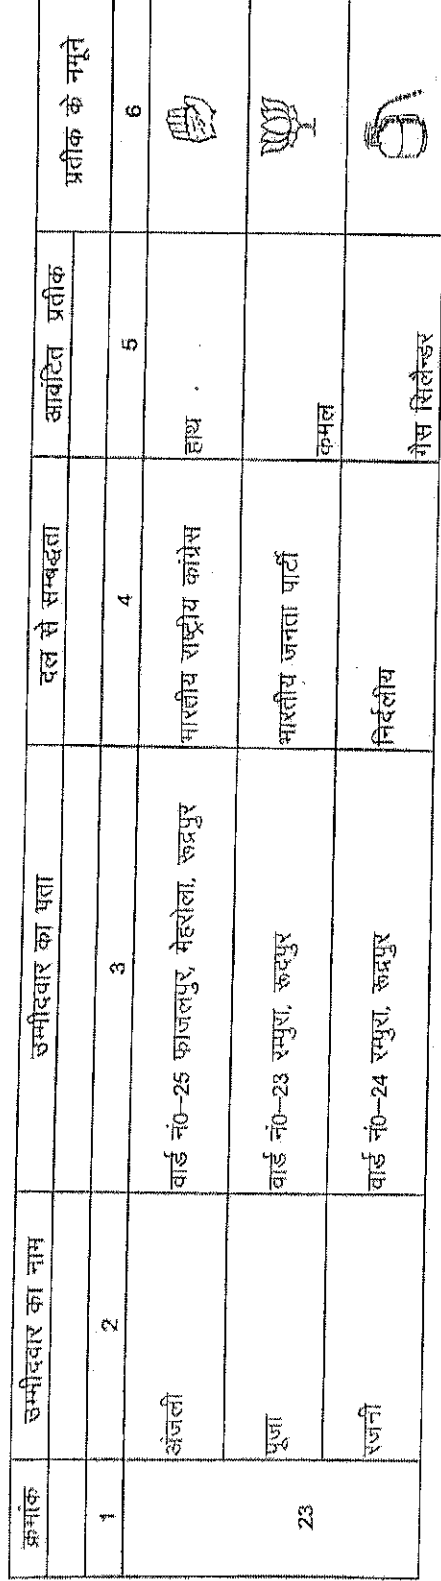 क्रमांक उम्मीदवार का नाम उम्मीदवार का पता दल से सम्बद्धता आवंटित प्रतीक प्रतीक के नमूने
1 2 3 4 5 6
23 अंजली वार्ड नं0-25 फाजलपुर, मेहरोला, रूद्रपुर भारतीय राष्ट्रीय कांग्रेस हाथ
पूजा वार्ड नं0-23 रम्पुरा, रूद्रपुर भारतीय जनता पार्टी कमल
रजनी वार्ड नं0-24 रम्पुरा, रूद्रपुर निर्दलीय गैस सिलैन्डर